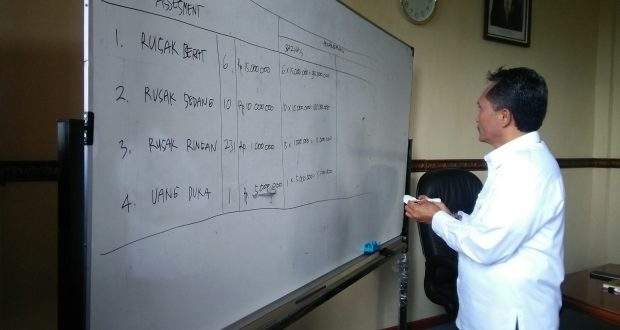 ASSESMENT
BAZNAS
1. RUSAK BERAT 6 Rp 15.000.000 6 x 15.000.000 = 90.000.000
2. RUSAK SEDANG 10 Rp 10.000.000 10 x 10.000.000 =
3. RUSAK RINGAN 231 Rp 1.000.000
4. UANG DUKA 1 Rp 5.000.000 1 x 5.000.000 = 5.000.000